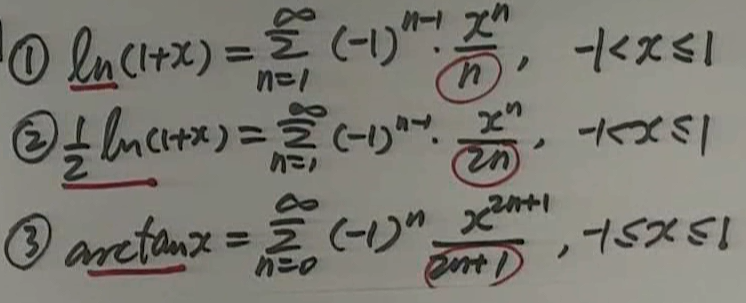 ① ln(1+x) = ∞∑n=1 (-1)^{n-1} · x^n/n, -1<x≤1
② 1/2 ln(1+x) = ∞∑n=1 (-1)^{n-1} · x^n/2n, -1<x≤1
③ arctanx = ∞∑n=0 (-1)^n x^{2n+1}/2n+1, -1≤x≤1